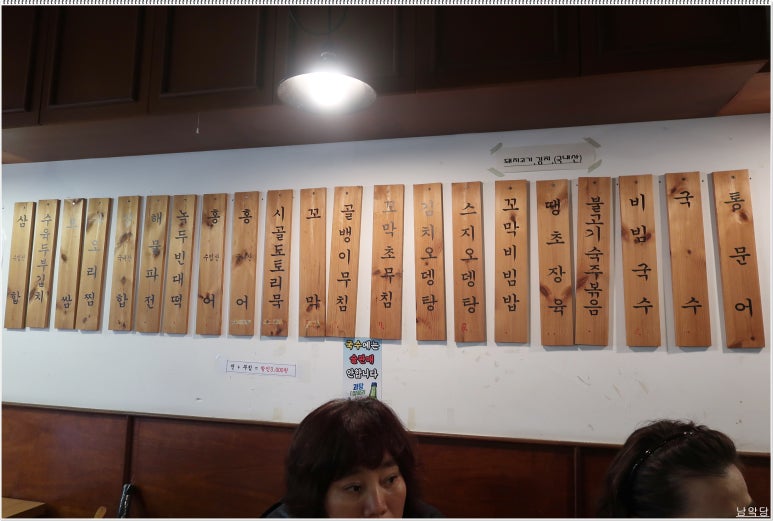 돼지고기,김치,(국내산)
삼 수입산 합
수육두부김치
보쌈
오리찜
삼 국내산 합
해물파전
녹두빈대떡
홍 수입산 어
홍어
시골도토리묵
꼬막
골뱅이무침
꼬막초무침
김치오뎅탕
스지오뎅탕
꼬막비빔밥
땡초장육
불고기숙주볶음
비빔국수
국수
통문어
국수에는
술판매
안합니다